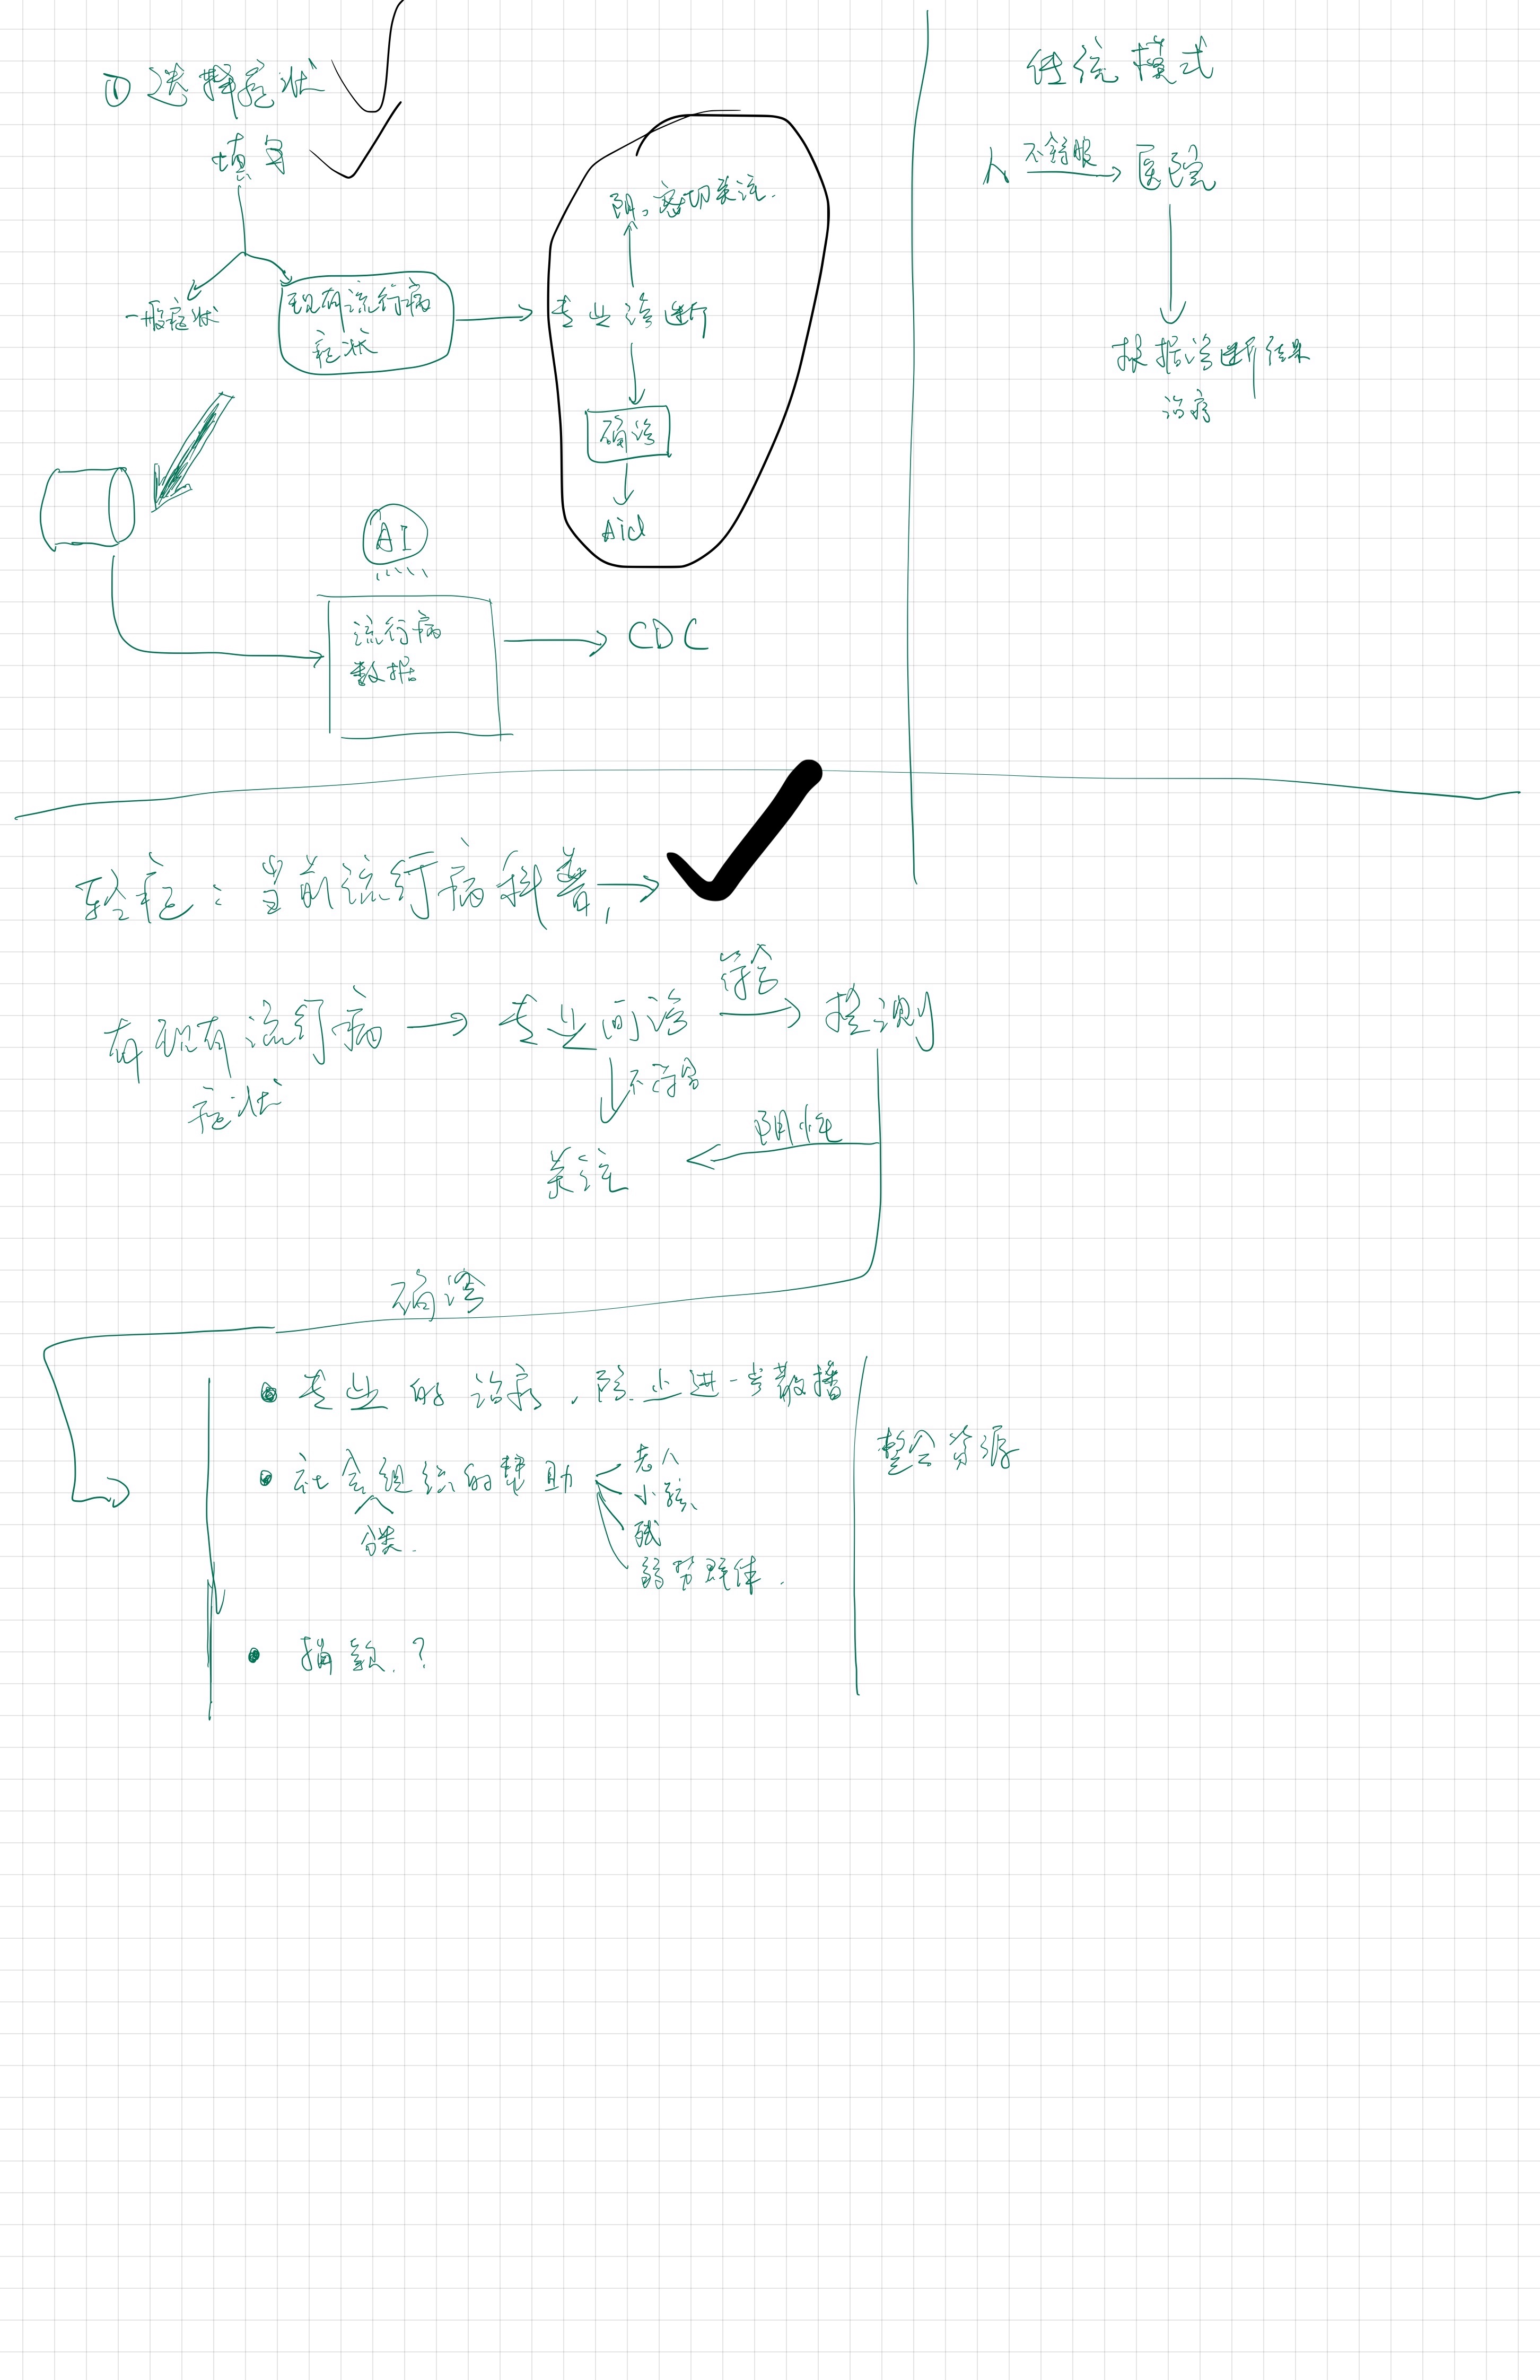 ① 选择症状
填写
一般症状
现有流行病
症状
专业诊断
阴。密切关注.
确诊
Aid
AI
流行病
数据
CDC
传统模式
人 不舒服 医院
根据诊断结果
治疗
轻症：当前流行病科普,
有现有流行病
症状
专业问诊
符合
检测
不符合
关注
阴性
确诊
• 专业的治疗，防止进一步散播
• 社会组织的帮助
分类.
老人
小孩、
残
弱势群体.
• 捐款.?
整合资源